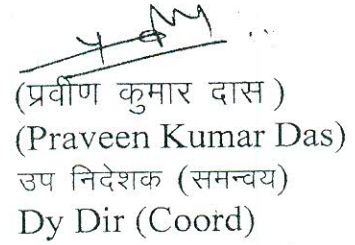 (प्रवीण कुमार दास )
(Praveen Kumar Das)
उप निदेशक (समन्वय)
Dy Dir (Coord)